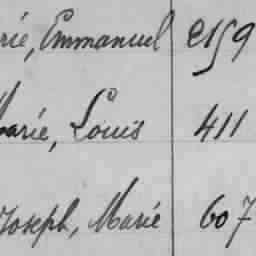 rie, Emmanuel 2159
Marie, Louis 411
Joseph, Marie 607